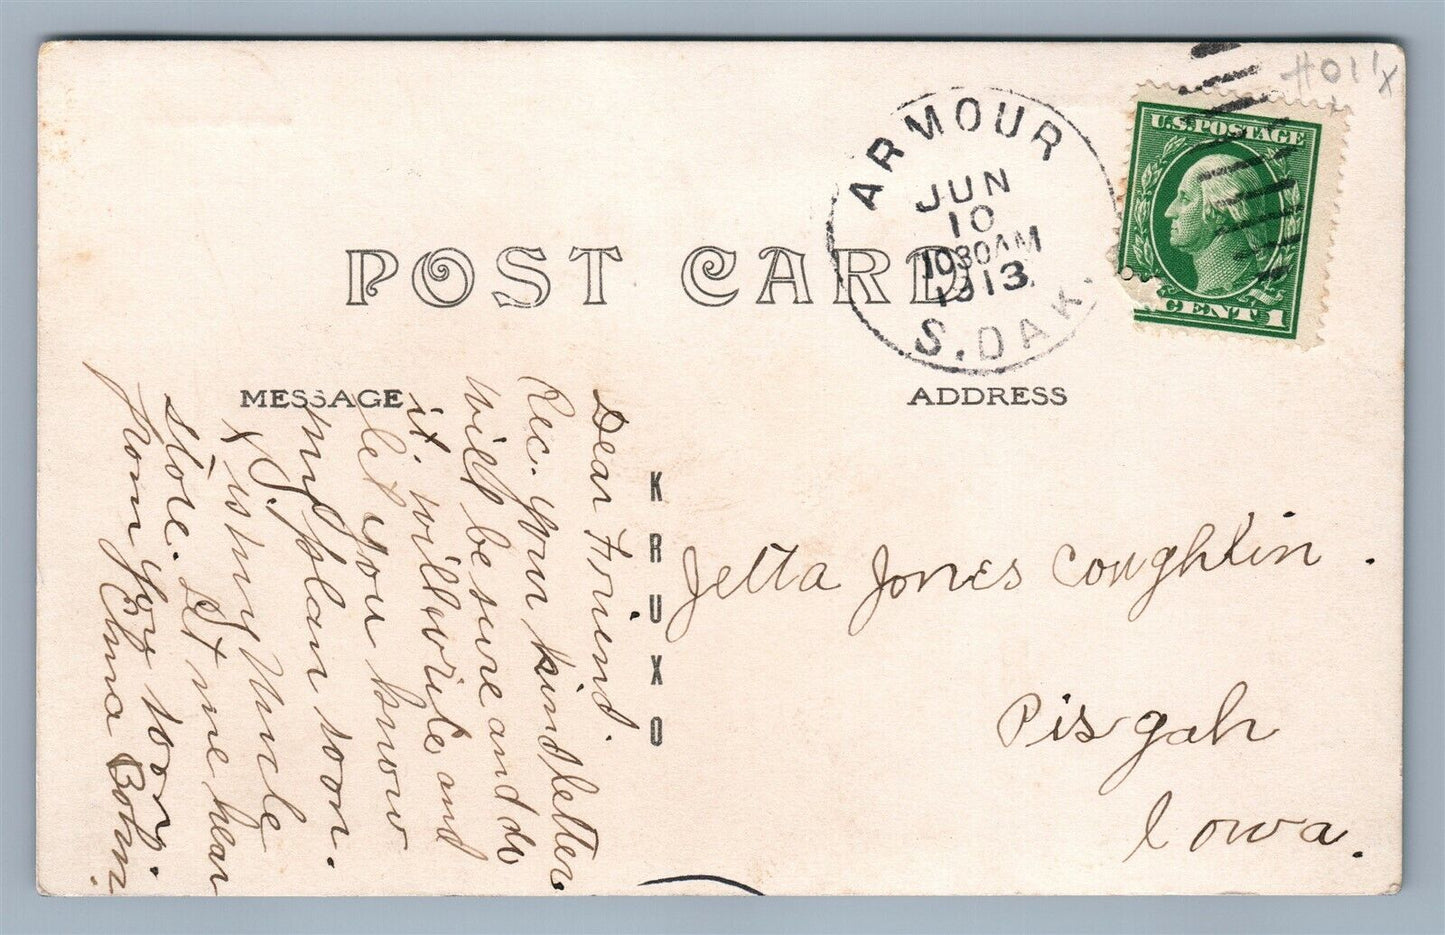 #011X
U.S.POSTAGE
CENT 1
ARMOUR
JUN
10
1030AM
1913
S. DAK.
POST CARD
MESSAGE
ADDRESS
KRUXO
Dear Friend.
Rec. your kind letter
will be sure and do
it. will write and
let you know
my plan soon.
X is my Uncle
store. Let me hear
from you soon.
Elma Bohn.
Jetta Jones Coughlin.
Pisgah
Iowa.